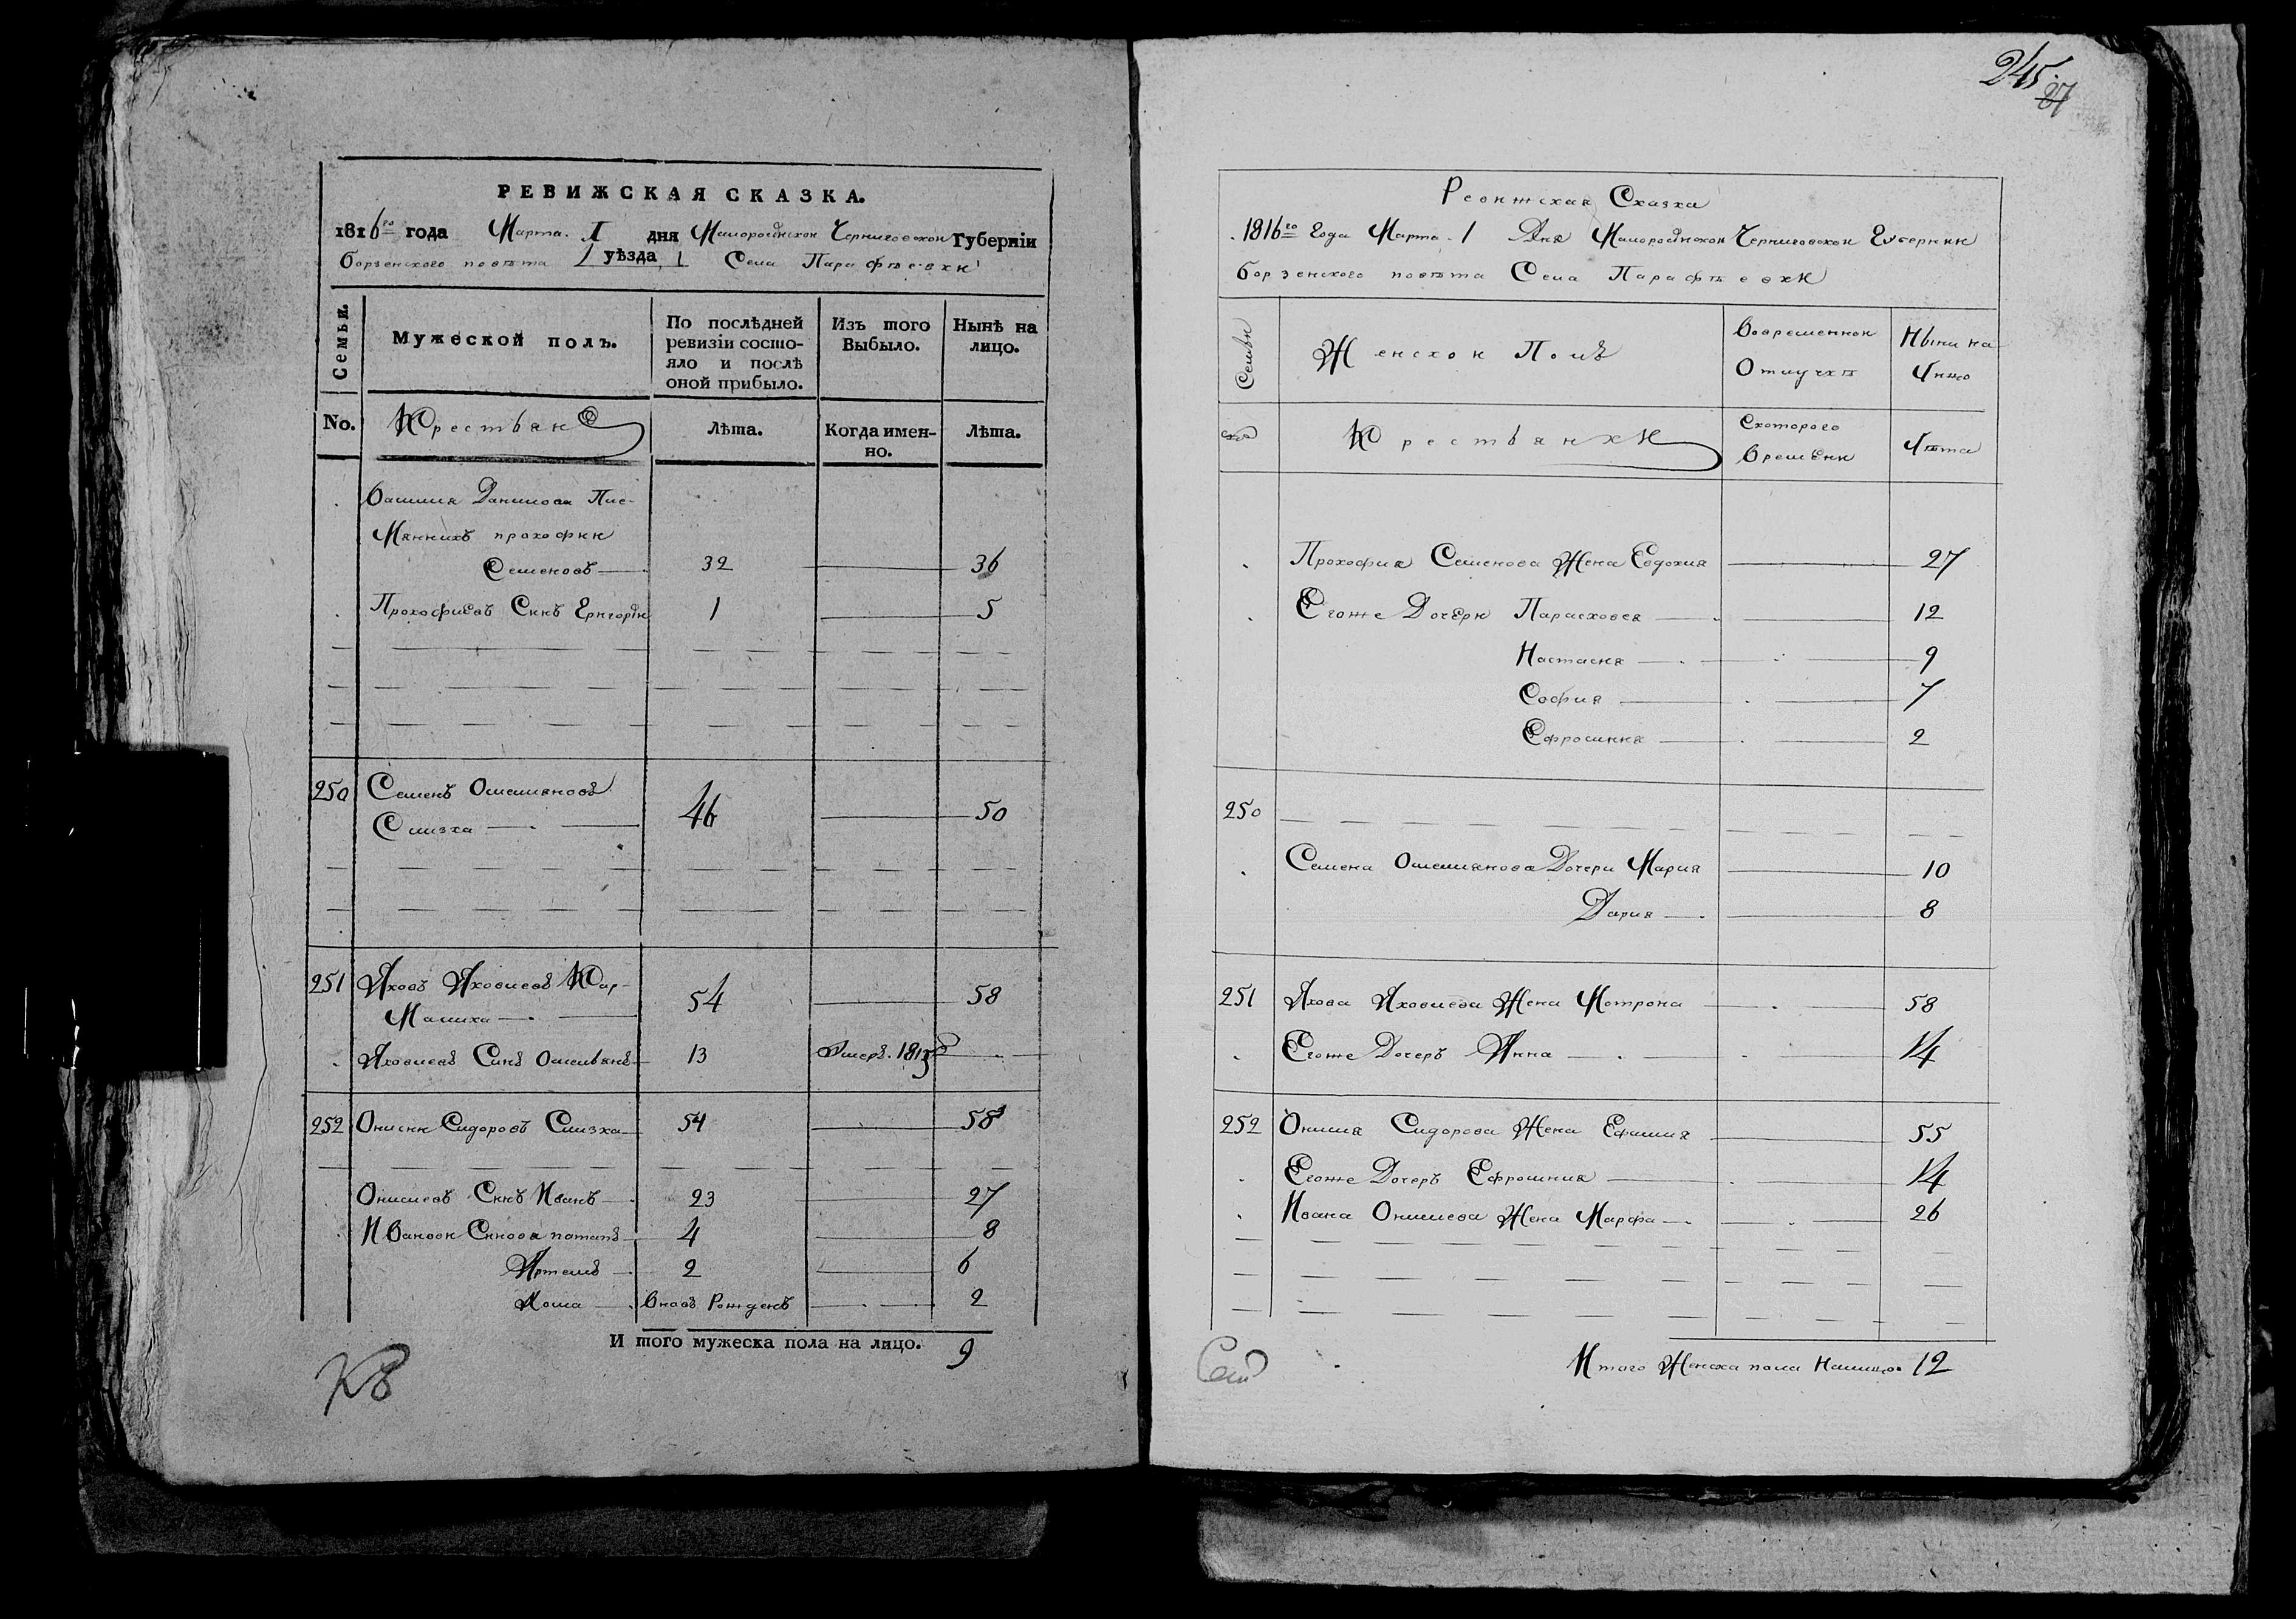 РЕВИЖСКАЯ СКАЗКА.
1816го года Марта. 1 дня Малороссийской Черниговской Губерніи
борзенского повѣта уѣзда Села Парафѣевки
Семьи.
Мужеской полъ.
По послѣдней
ревизіи состо-
яло и послѣ
оной прибыло.
Изъ того
Выбыло.
Нынѣ на
лицо.
No.
Крестьяне
Лѣта.
Когда имен-
но.
Лѣта.
Данилова Пис-
прокофий
Семеновъ 32 36
Прокофиевъ Синъ Григорий 1 5
250 Семенъ Омеляновъ
Слизка 46 50
251 Яковъ Яковлевъ Кар-
54 58
Яковлевъ Синъ Омельянъ 13 Умеръ. 1813
252 Онисии Сидоровъ Слизка 54 58
Онисиевъ Синъ Иванъ 23 27
Ивановы Синовя потапъ 4 8
Артемъ 2 6
Хома вновь Рожденъ 2
И того мужеска пола на лицо. 9
245
27
Ревижская Сказка
1816го Года Марта 1 Дня Малороссийской Черниговской Губернии
борзенского повѣта Села Парафѣевки
Семьи
Женской Полъ
Вовременной
Отлучкѣ
Ныни на
Лицо
Крестьянки
Скоторого
времени
Лѣта
Прокофия Семенова Жена Евдокия 27
Егоже Дочери Парасковея 12
Настасия 9
София 7
Ефросиния 2
250
Семена Омелянова Дочери Мария 10
Дария 8
251 Якова Яковлева Жена Мотрона 58
Егоже Дочеръ Анна 14
252 Сидорова Жена Ефимия 55
Егоже Дочеръ Ефросиния 14
Ивана Онисиева Жена Марфа 26
Итого Женска пола Налицо 12